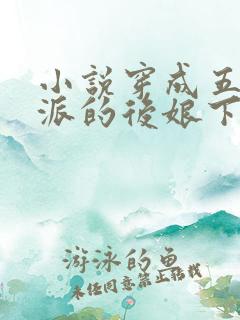 小說穿成五
派的後娘下
游泳的鱼
未经同意禁止转载